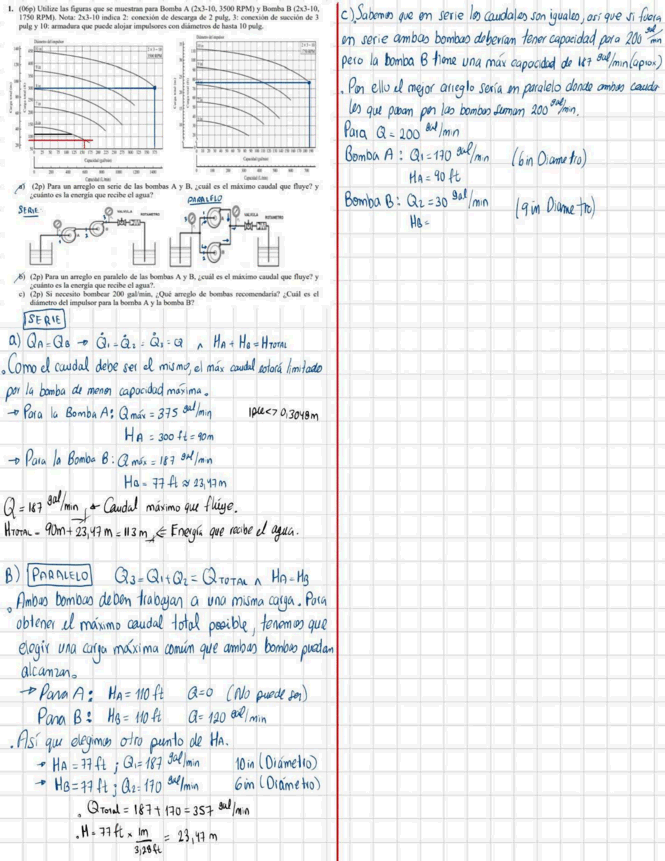 1. (06p) Utilize las figuras que se muestran para Bomba A (2x3-10, 3500 RPM) y Bomba B (2x3-10,
1750 RPM). Nota: 2x3-10 indica 2: conexión de descarga de 2 pulg, 3: conexión de succión de 3
pulg y 10: armadura que puede alojar impulsores con diámetros de hasta 10 pulg.
Capacidad (gal/min)
Capacidad (L/min)
Capacidad (gal/min)
Capacidad (L/min)
a) (2p) Para un arreglo en serie de las bombas A y B, ¿cuál es el máximo caudal que fluye? y
¿cuánto es la energía que recibe el agua?
SERIE
PARALELO
VALVULA
ROTAMETRO
VALVULA
ROTAMETRO
b) (2p) Para un arreglo en paralelo de las bombas A y B, ¿cuál es el máximo caudal que fluye? y
¿cuánto es la energía que recibe el agua?.
c) (2p) Si necesito bombear 200 gal/min, ¿Qué arreglo de bombas recomendaría? ¿Cuál es el
diámetro del impulsor para la bomba A y la bomba B?
SERIE
a) QA = QB → Q̇1 = Q̇2 = Q̇3 = Q ∧ HA + HB = HTOTAL
. Como el caudal debe ser el mismo, el máx caudal estará limitado
por la bomba de menor capacidad máxima.
→ Para la Bomba A: Qmáx = 375 gal/min 1pie <> 0,3048m
HA = 300 ft = 90m
→ Para la Bomba B: Qmáx = 187 gal/min
HB = 77 ft ≈ 23,47m
Q = 187 gal/min → Caudal máximo que fluye.
HTOTAL = 90m + 23,47m = 113m ⇐ Energía que recibe el agua.
B) PARALELO Q3 = Q1 + Q2 = QTOTAL ∧ HA = HB
. Ambas bombas deben trabajar a una misma carga. Para
obtener el máximo caudal total posible, tenemos que
elegir una carga máxima común que ambas bombas puedan
alcanzar.
→ Para A: HA = 110 ft Q=0 (No puede ser)
Para B: HB = 110 ft Q = 120 gal/min
. Así que elegimos otro punto de HA.
→ HA = 77 ft ; Q1 = 187 gal/min 10 in (Diámetro)
→ HB = 77 ft ; Q2 = 170 gal/min 6 in (Diámetro)
. QTotal = 187 + 170 = 357 gal/min
. H = 77 ft x 1m / 3,28 ft = 23,47 m
c) Sabemos que en serie los caudales son iguales, así que si fuera
en serie ambas bombas deberían tener capacidad para 200 gal/min
pero la bomba B tiene una máx capacidad de 187 gal/min (aprox)
. Por ello el mejor arreglo sería en paralelo donde ambos cauda-
les que pasan por las bombas suman 200 gal/min.
Para Q = 200 gal/min
Bomba A: Q1 = 170 gal/min (6 in Diametro)
HA = 90 ft
Bomba B: Q2 = 30 gal/min (9 in Diametro)
HB =